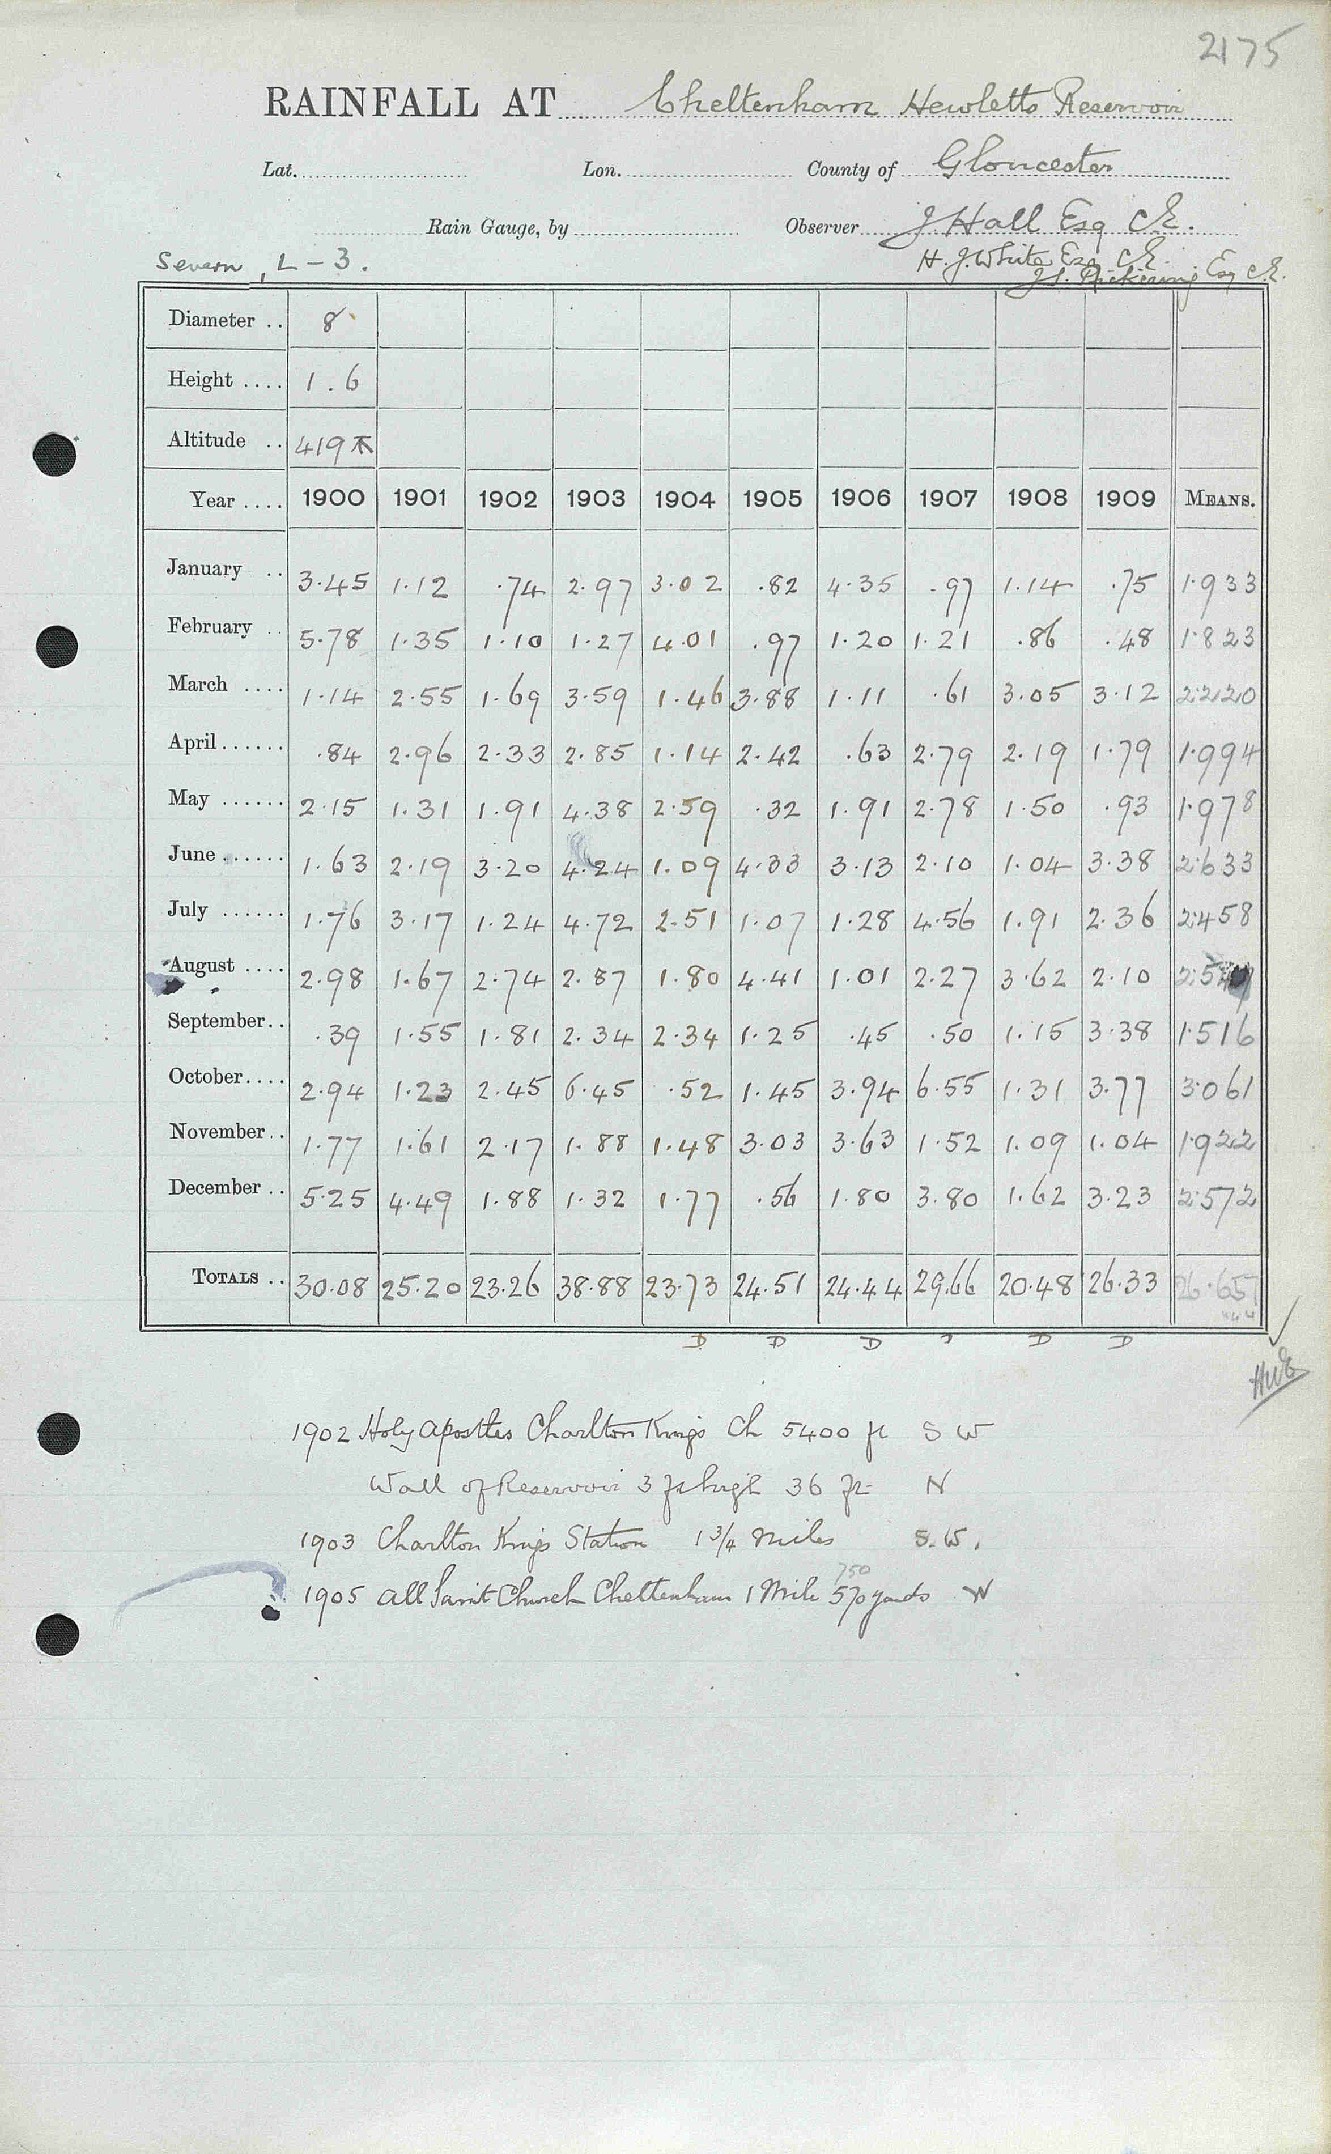 2175
RAINFALL AT Cheltenham Hewletts Reservoir
Lat. Lon. County of Gloucester
Rain Gauge, by Observer J. Hall Esq C.E.
Severn, L-3. H. J. White Esq C.E.
Pickering Esq C.E.
Diameter .. 8
Height .... 1.6
Altitude .. 419
Year .... 1900 1901 1902 1903 1904 1905 1906 1907 1908 1909 MEANS.
January .. 3.45 1.12 .74 2.97 3.02 .82 4.35 .97 1.14 .75 1.933
February .. 5.78 1.35 1.10 1.27 4.01 .97 1.20 1.21 .86 .48 1.823
March .... 1.14 2.55 1.69 3.59 1.46 3.88 1.11 .61 3.05 3.12 2.220
April ...... .84 2.96 2.33 2.85 1.14 2.42 .63 2.79 2.19 1.79 1.994
May ...... 2.15 1.31 1.91 4.38 2.59 .32 1.91 2.78 1.50 .93 1.978
June ...... 1.63 2.19 3.20 4.24 1.09 4.33 3.13 2.10 1.04 3.38 2.633
July ...... 1.76 3.17 1.24 4.72 2.51 1.07 1.28 4.56 1.91 2.36 2.458
August .... 2.98 1.67 2.74 2.87 1.80 4.41 1.01 2.27 3.62 2.10
September .. .39 1.55 1.81 2.34 2.34 1.25 .45 .50 1.15 3.38 1.516
October .... 2.94 1.23 2.45 6.45 .52 1.45 3.94 6.55 1.31 3.77 3.061
November .. 1.77 1.61 2.17 1.88 1.48 3.03 3.63 1.52 1.09 1.04 1.922
December .. 5.25 4.49 1.88 1.32 1.77 .56 1.80 3.80 1.62 3.23 2.572
TOTALS .. 30.08 25.20 23.26 38.88 23.73 24.51 24.44 29.66 20.48 26.33 26.657
D D D D D
1902 Holy Apostles Charlton Kings Ch 5400 ft S W
Wall of Reservoir 3 ft high 36 ft N
1903 Charlton Kings Station 1 3/4 Miles S.W.
750
1905 All Saint Church Cheltenham 1 Mile 570 yards W